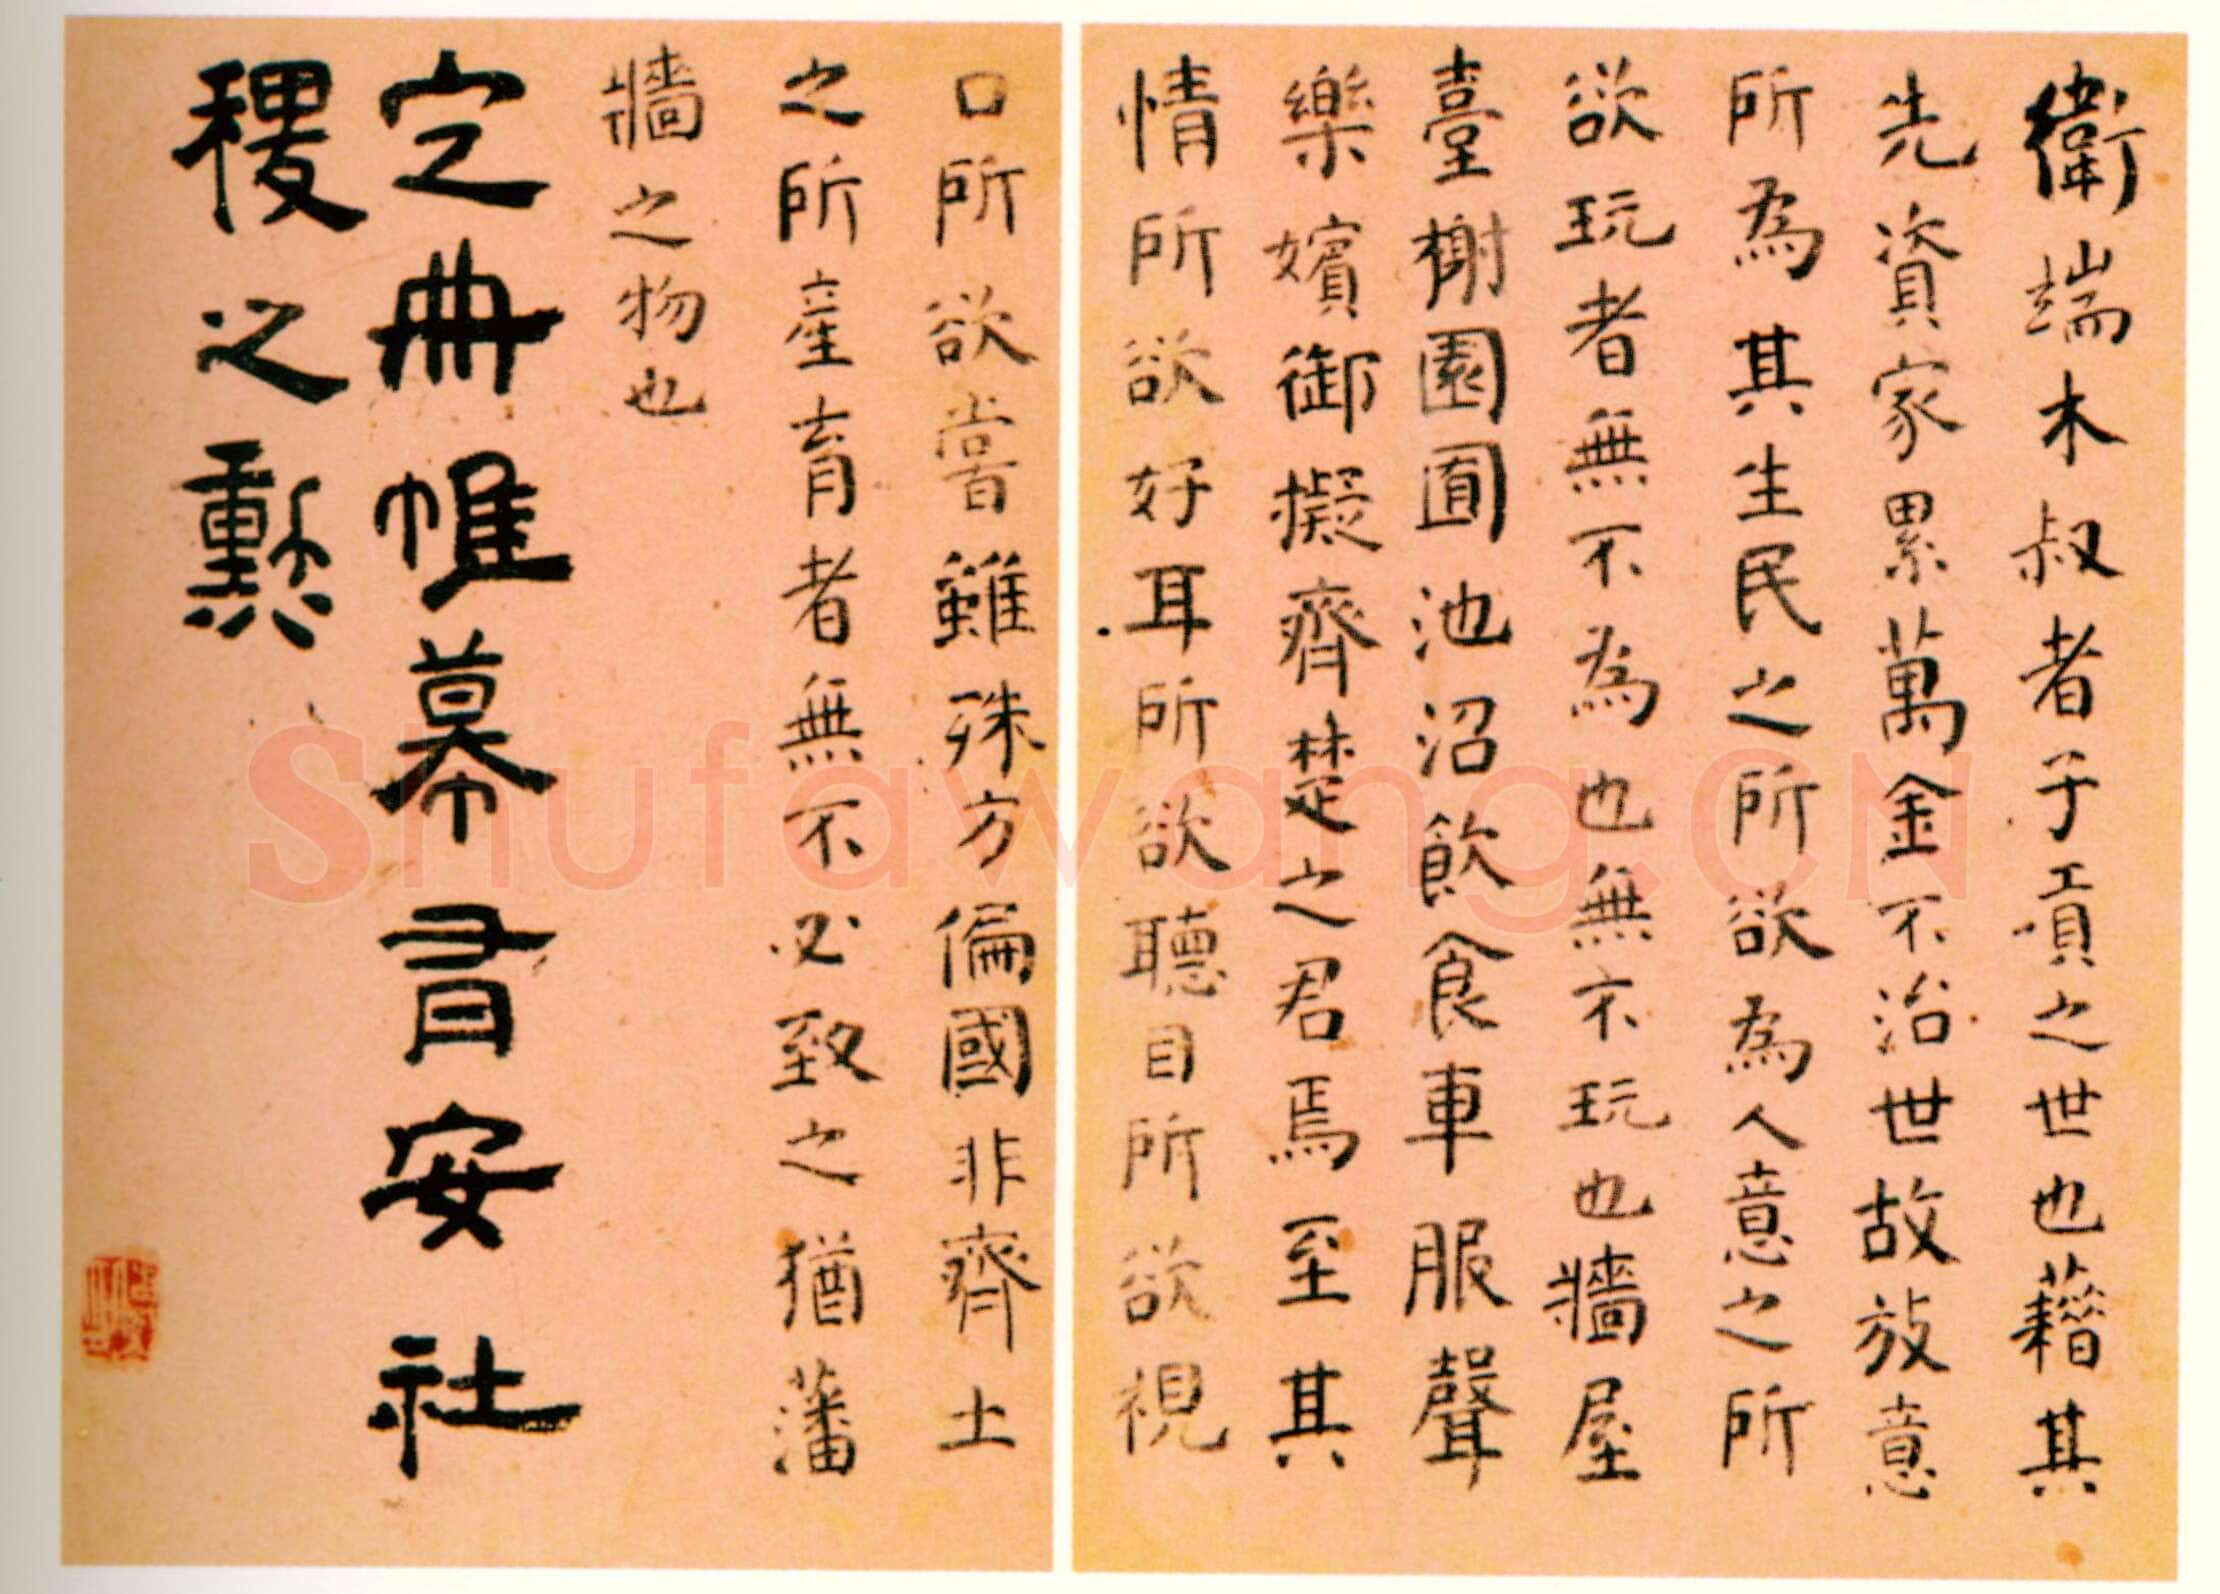 衛端木叔者子貢之世也藉其
先資家累萬金不治世故放意
所為其生民之所欲為人意之所
欲玩者無不為也無不玩也牆屋
臺榭園囿池沼飲食車服聲
樂嬪御擬齊楚之君焉至其
情所欲好耳所欲聽目所欲視
口所欲嘗雖殊方偏國非齊土
之所產育者無不必致之猶藩
牆之物也
定冊帷幕有安社
稷之勳
Shufawang.CN